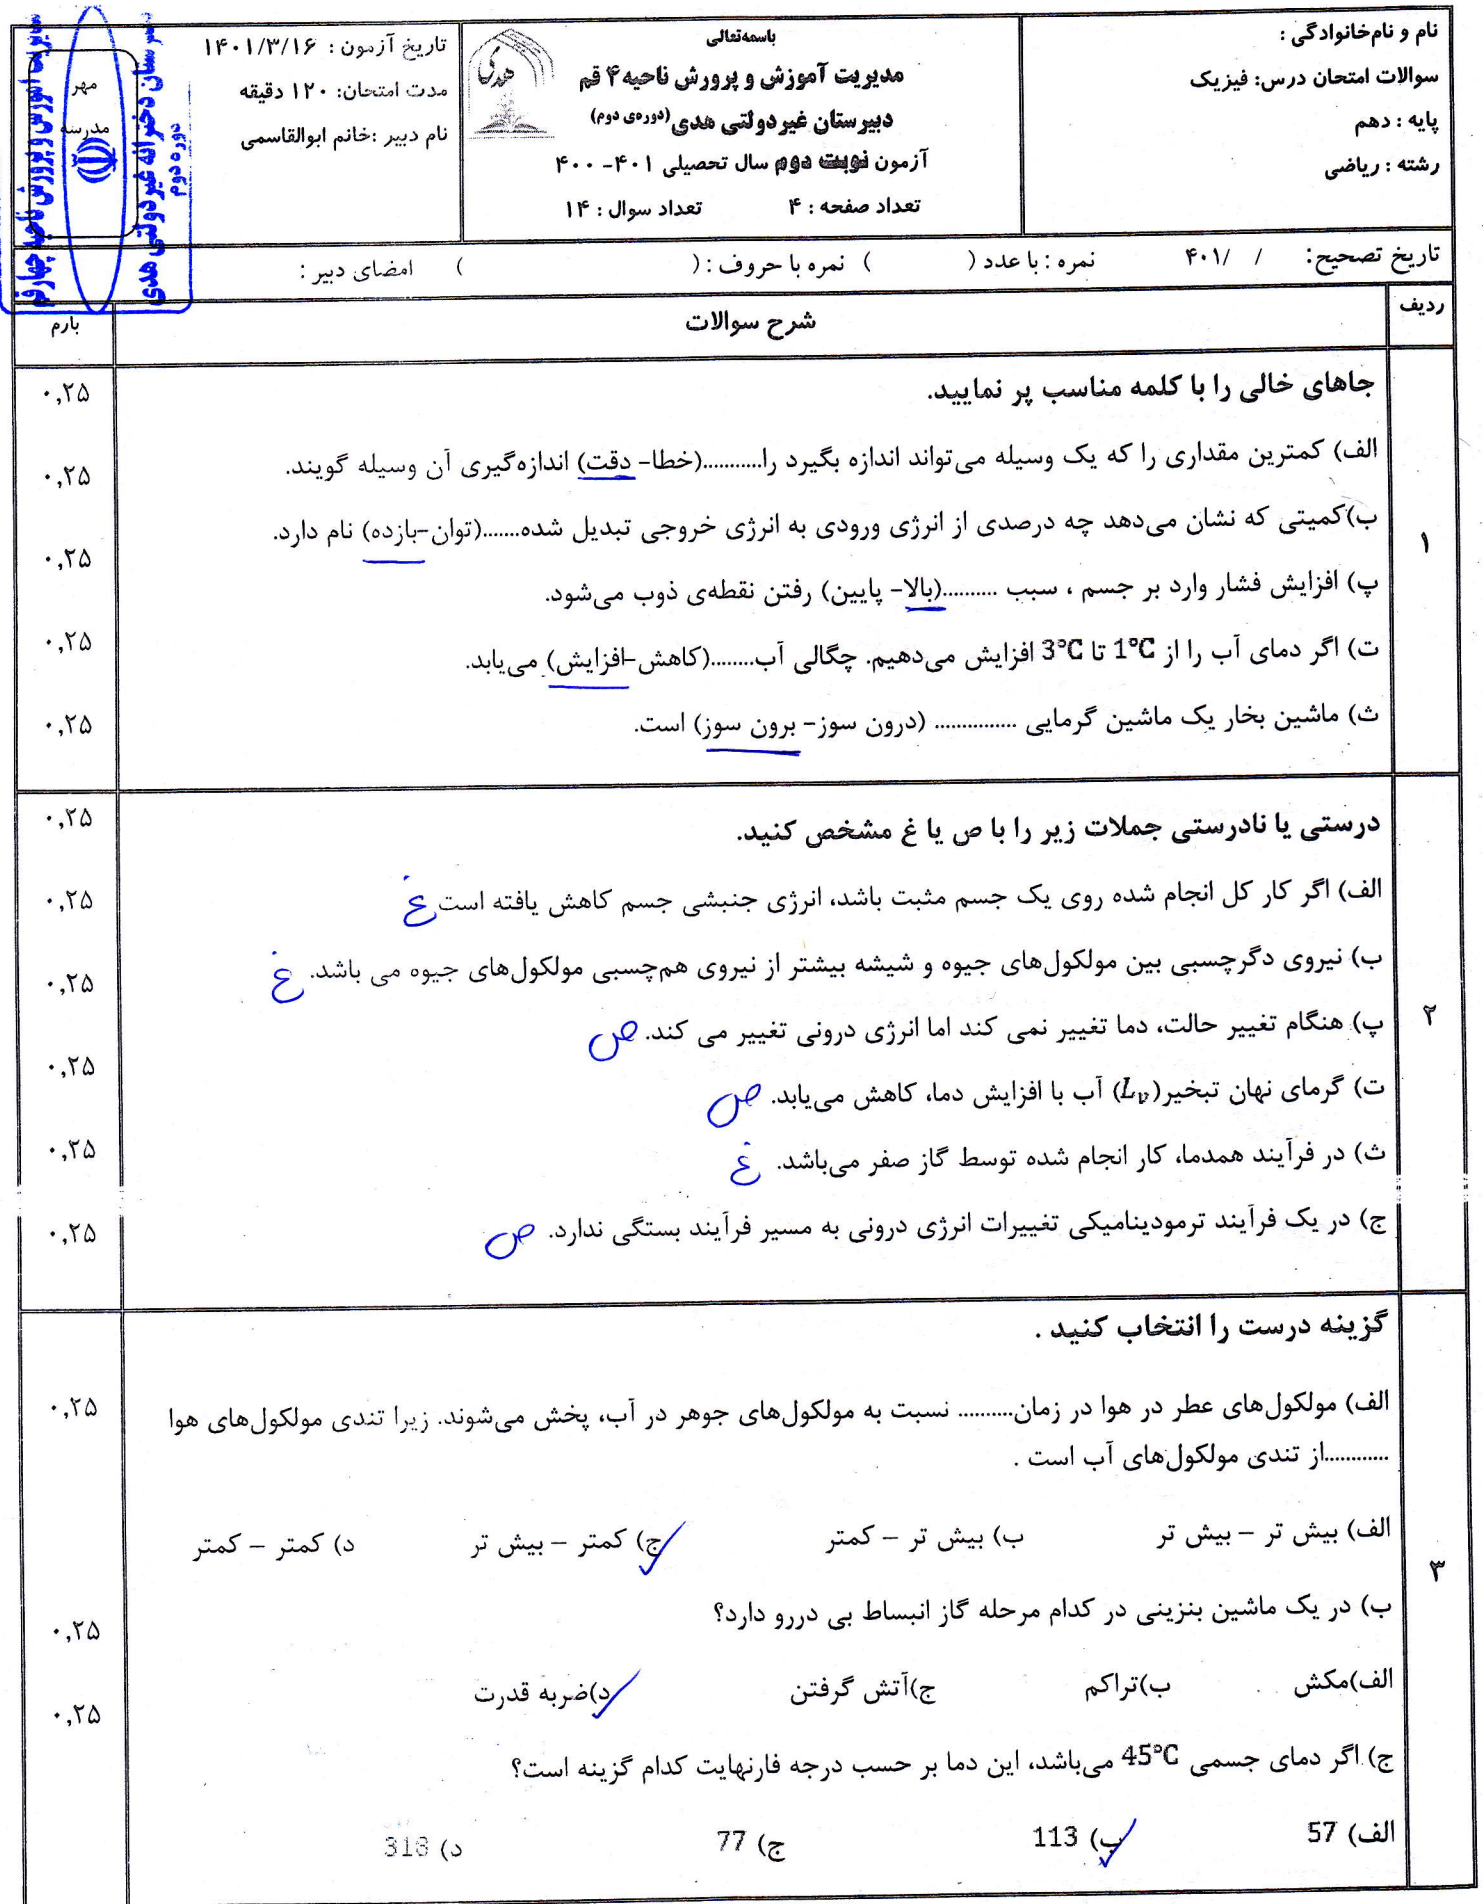 نام و نام‌خانوادگی :
سوالات امتحان درس: فیزیک
پایه : دهم
رشته : ریاضی
باسمه‌تعالی
مدیریت آموزش و پرورش ناحیه۴ قم
دبیرستان غیردولتی هدی(دوره‌ی دوم)
آزمون نوبت دوم سال تحصیلی ۴۰۱- ۴۰۰
تعداد صفحه : ۴ تعداد سوال : ۱۴
هدی
تاریخ آزمون : ۱۴۰۱/۳/۱۶
مدت امتحان: ۱۲۰ دقیقه
نام دبیر :خانم ابوالقاسمی
مهر
مدرسه
دبیرستان دخترانه غیردولتی هدی
دوره دوم
مدیریت آموزش و پرورش ناحیه چهار قم
تاریخ تصحیح: / /۴۰۱ نمره : با عدد ( ) نمره با حروف : ( ) امضای دبیر :
ردیف شرح سوالات بارم
جاهای خالی را با کلمه مناسب پر نمایید. ۰,۲۵
الف) کمترین مقداری را که یک وسیله می‌تواند اندازه بگیرد را...........(خطا- دقت) اندازه‌گیری آن وسیله گویند. ۰,۲۵
۱ ب)کمیتی که نشان می‌دهد چه درصدی از انرژی ورودی به انرژی خروجی تبدیل شده.......(توان-بازده) نام دارد. ۰,۲۵
پ) افزایش فشار وارد بر جسم ، سبب ..........(بالا- پایین) رفتن نقطه‌ی ذوب می‌شود.
ت) اگر دمای آب را از 1°C تا 3°C افزایش می‌دهیم. چگالی آب........(کاهش-افزایش) می‌یابد. ۰,۲۵
ث) ماشین بخار یک ماشین گرمایی ............... (درون سوز- برون سوز) است. ۰,۲۵
درستی یا نادرستی جملات زیر را با ص یا غ مشخص کنید. ۰,۲۵
الف) اگر کار کل انجام شده روی یک جسم مثبت باشد، انرژی جنبشی جسم کاهش یافته است غ ۰,۲۵
ب) نیروی دگرچسبی بین مولکول‌های جیوه و شیشه بیشتر از نیروی هم‌چسبی مولکول‌های جیوه می باشد. غ ۰,۲۵
۲ پ) هنگام تغییر حالت، دما تغییر نمی کند اما انرژی درونی تغییر می کند. ص
ت) گرمای نهان تبخیر(Lᵥ) آب با افزایش دما، کاهش می‌یابد. ص ۰,۲۵
ث) در فرآیند همدما، کار انجام شده توسط گاز صفر می‌باشد. غ ۰,۲۵
ج) در یک فرآیند ترمودینامیکی تغییرات انرژی درونی به مسیر فرآیند بستگی ندارد. ص ۰,۲۵
گزینه درست را انتخاب کنید .
الف) مولکول‌های عطر در هوا در زمان.......... نسبت به مولکول‌های جوهر در آب، پخش می‌شوند. زیرا تندی مولکول‌های هوا ۰,۲۵
............از تندی مولکول‌های آب است .
الف) بیش تر – بیش تر ب) بیش تر – کمتر ج) کمتر – بیش تر د) کمتر – کمتر
۳
ب) در یک ماشین بنزینی در کدام مرحله گاز انبساط بی دررو دارد؟ ۰,۲۵
الف)مکش ب)تراکم ج)آتش گرفتن د)ضربه قدرت ۰,۲۵
ج) اگر دمای جسمی 45°C می‌باشد، این دما بر حسب درجه فارنهایت کدام گزینه است؟
الف) 57 ب) 113 ج) 77 د) 318